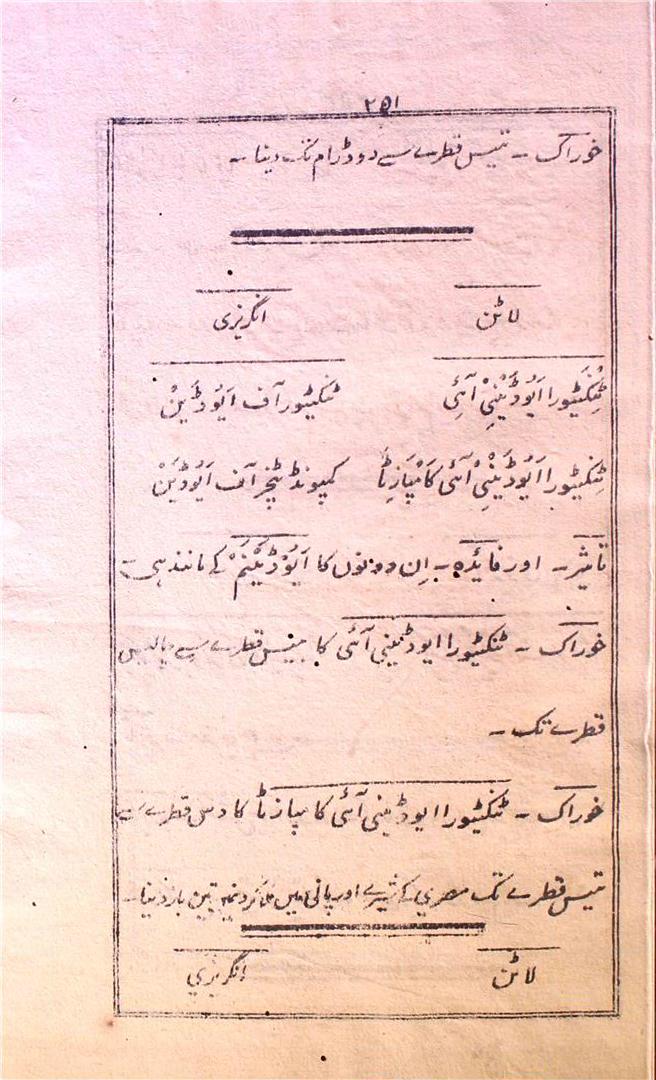 ۲۵۱
خوراک ۔ تیس قطرے سے دو ڈرام تک دینا ۔
لاٹن انگریزی
ٹِنکٹیُورا ایُوڈَینیِ آئی ٹنکیٹیور آف ایُوڈَینْ
ٹِنکٹیُورا ایُوڈَینیِ آئی کامْپازِٹا کمپونڈ ٹنچر آف ایُوڈیَنْ
تاثیر ۔ اور فایٔدہ ۔ اِن دونوں کا ایُوڈَینَمْ کے مانند ہی
خوراک ۔ ٹنکٹیورا ایوڈینی آئی کا بیس قطرے سے چالیس
قطرے تک ۔
خوراک ۔ ٹنکٹیورا ایوڈینی آئی کامپازٹا کا دس قطرے سے
تیس قطرے تک مصری کے شیرے اور پانی میں ملا کر دنمیں تین بار دینا ۔
لاٹن انگریزی